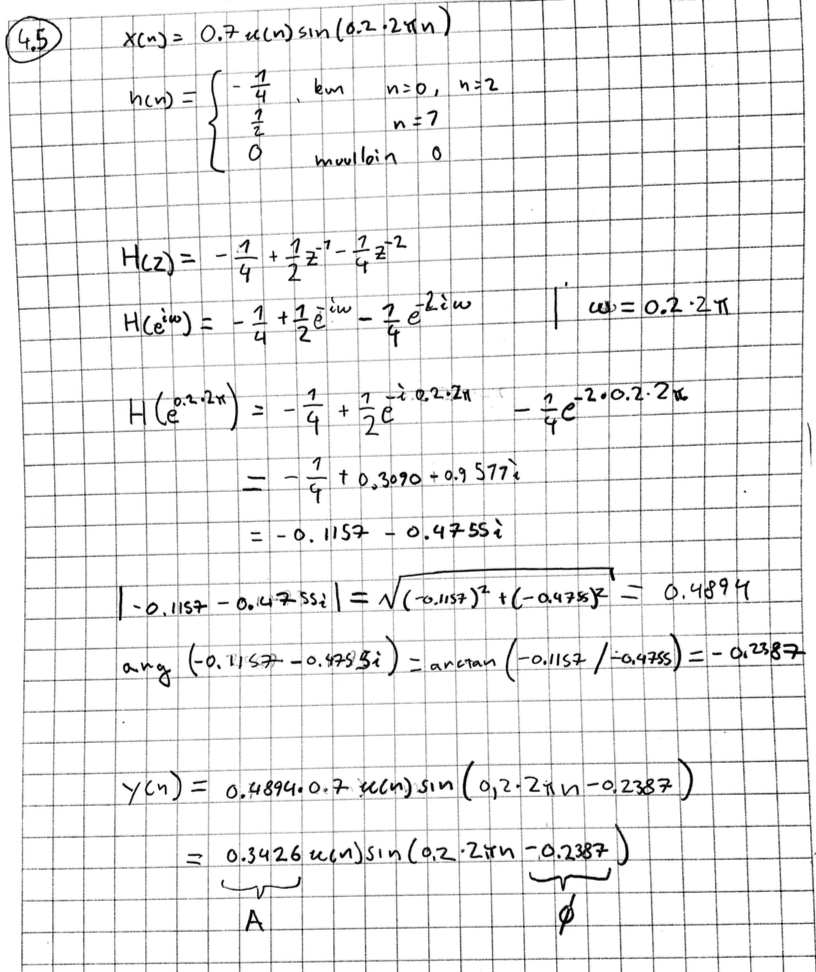 4.5 x(n) = 0.7 u(n) sin(0.2·2πn)
h(n) = { -1/4, kun n=0, n=2
1/2 n=1
0 muulloin 0
H(z) = -1/4 + 1/2 z^-1 - 1/4 z^-2
H(e^iω) = -1/4 + 1/2 e^-iω - 1/4 e^-2iω | ω = 0.2·2π
H(e^0.2·2π) = -1/4 + 1/2 e^-i·0.2·2π - 1/4 e^-2·0.2·2π
= -1/4 + 0.3090 + 0.9577i
= -0.1157 - 0.4755i
|-0.1157 - 0.4755i| = √((-0.1157)² + (-0.4755)²) = 0.4894
arg (-0.1157 - 0.4755i) = arctan (-0.1157 / -0.4755) = -0.2387
y(n) = 0.4894·0.7 u(n) sin(0,2·2πn - 0.2387)
= 0.3426 u(n) sin(0.2·2πn - 0.2387)
A ϕ